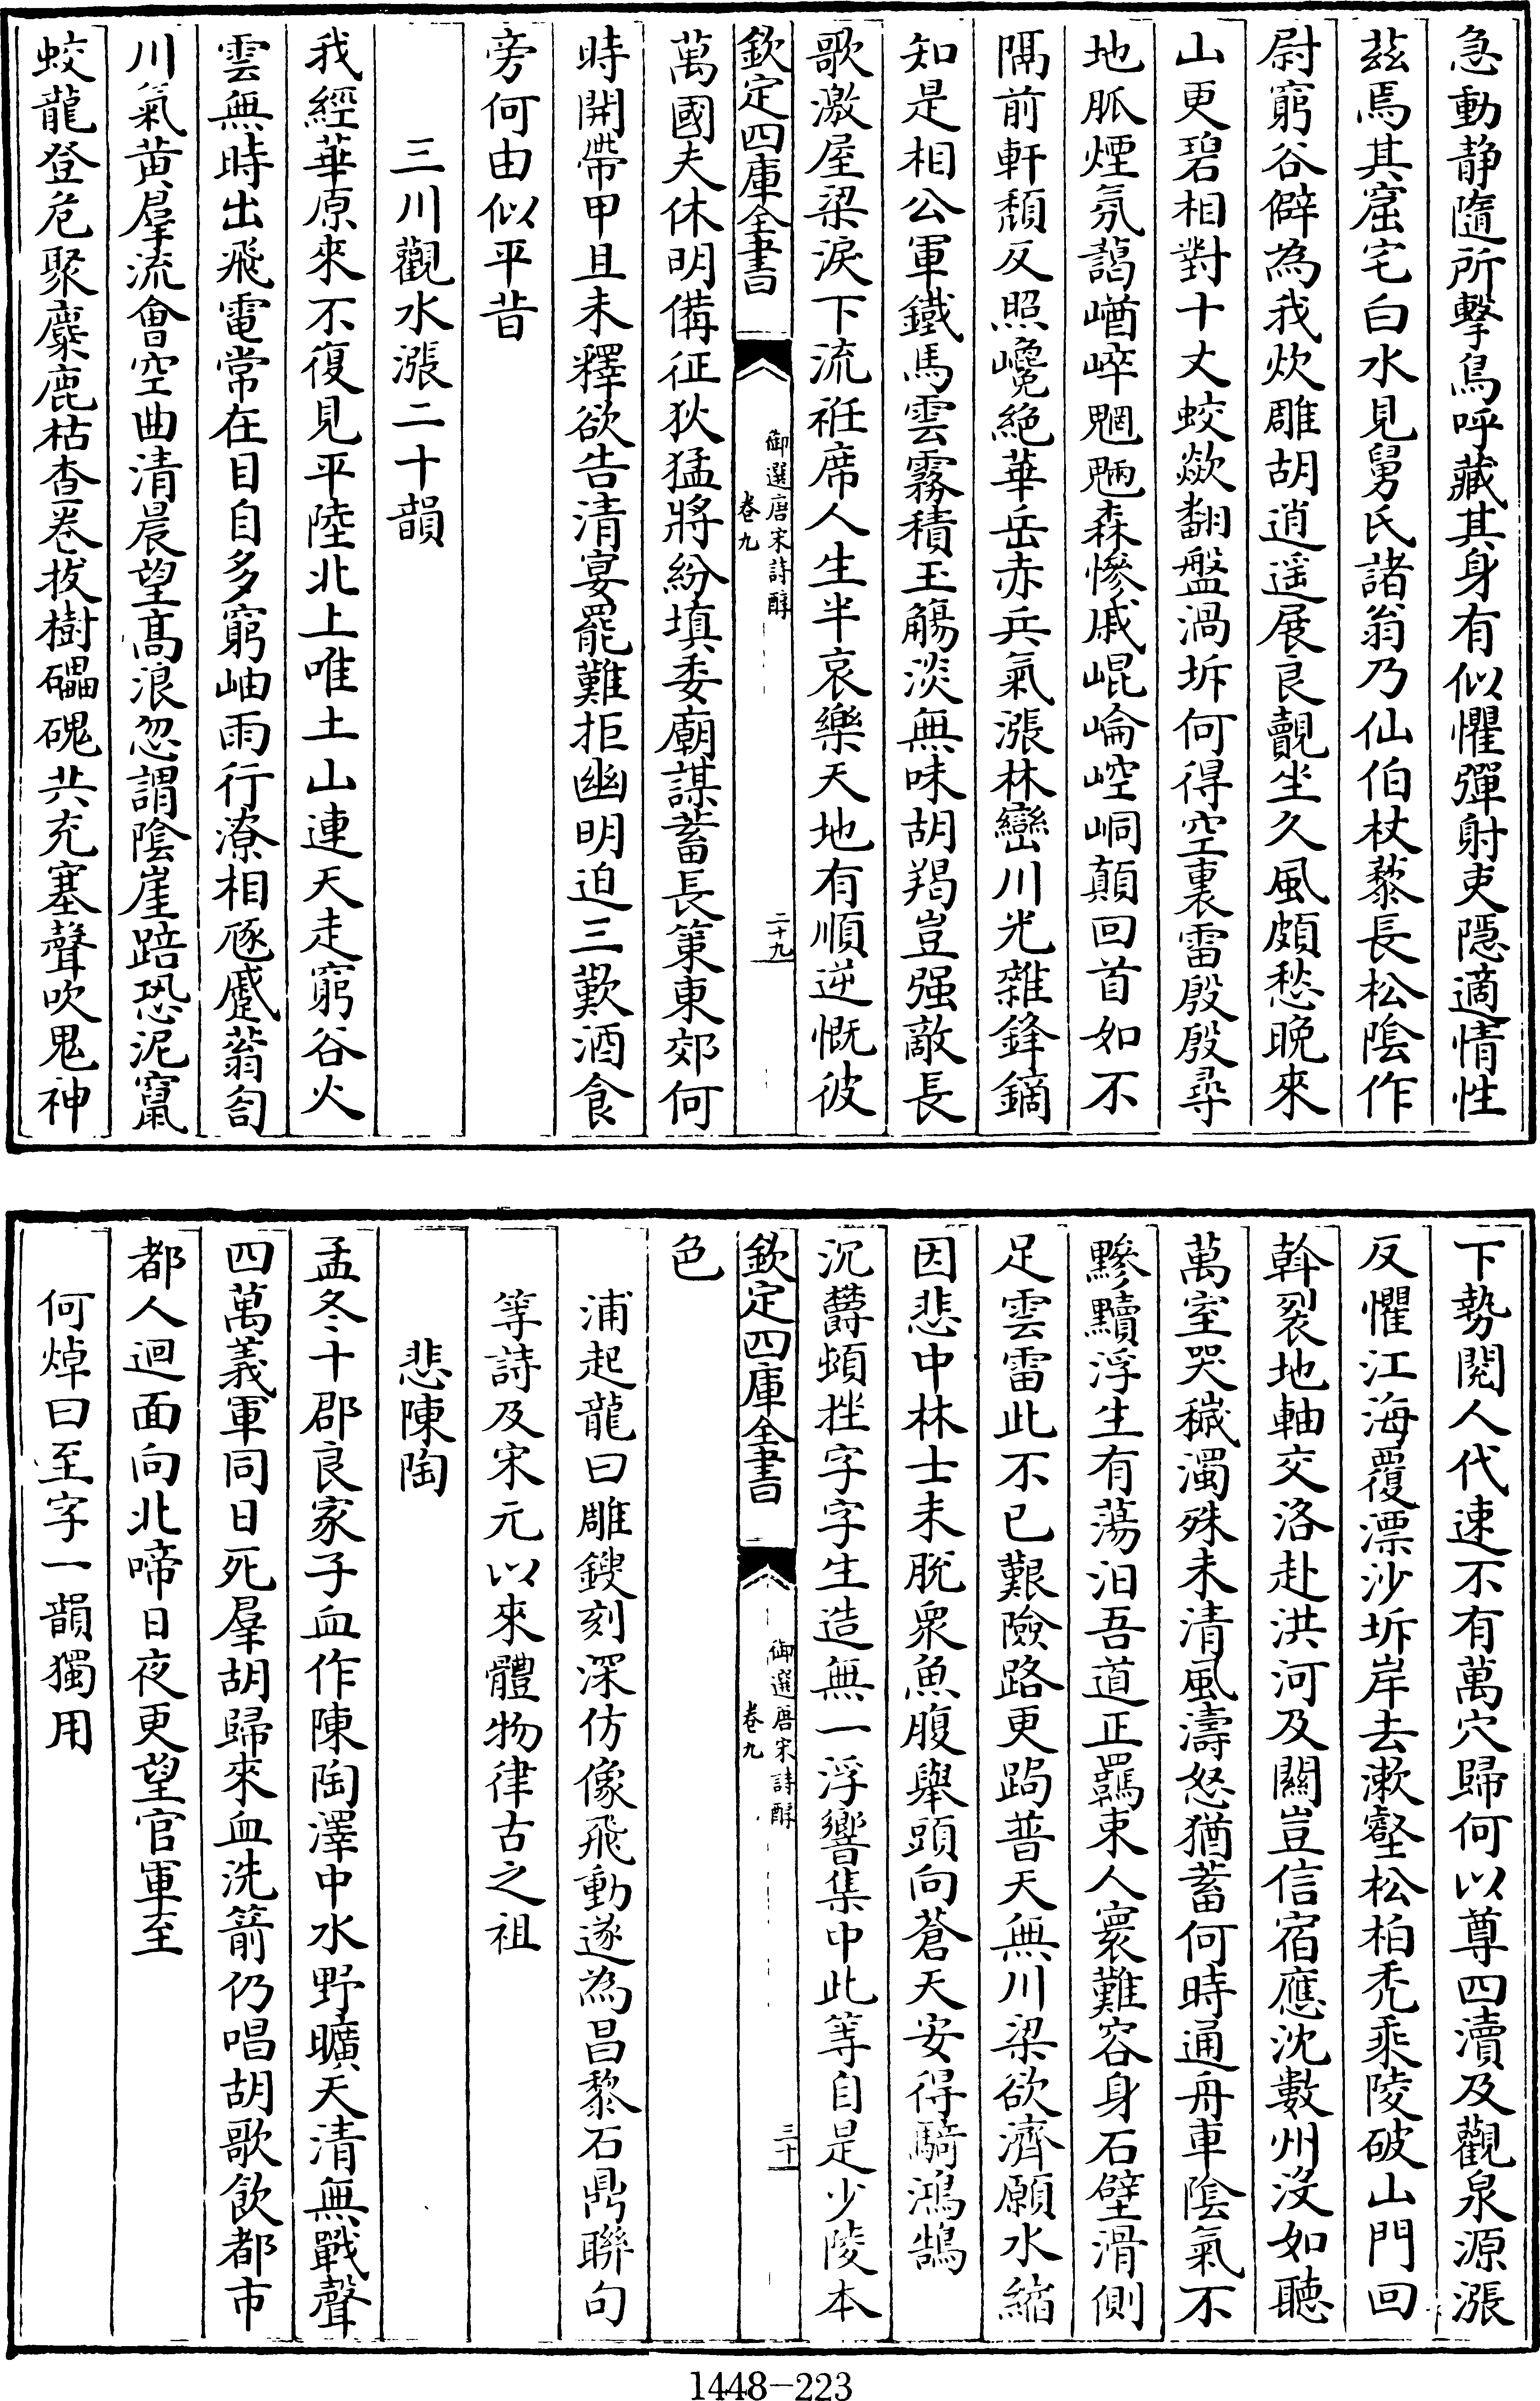 急動静隨所擊鳥呼藏其身有似懼彈射吏隱適情性
茲焉其窟宅白水見舅氏諸翁乃仙伯杖藜長松陰作
尉窮谷僻為我炊雕胡逍遥展良覿坐久風頗愁晚來
山更碧相對十丈蛟欻翻盤渦坼何得空裏雷殷殷尋
地脈煙氛藹崷崪魍魎森慘戚崐崘崆峒顛回首如不
隔前軒頽反照巉絶華岳赤兵氣漲林巒川光雜鋒鏑
知是相公軍鐵馬雲霧積玉觴淡無味胡羯豈强敵長
歌激屋梁淚下流衽席人生半哀樂天地有順逆慨彼
欽定四庫全書
御選唐宋詩醇
卷九
二十九
萬國夫休明備征狄猛將紛填委廟謀蓄長策東郊何
時開帶甲且未釋欲告清宴罷難拒幽明迫三歎酒食
旁何由似平昔
三川觀水漲二十韻
我經華原來不復見平陸北上唯土山連天走窮谷火
雲無時出飛電常在目自多窮岫雨行潦相豗蹙蓊匌
川氣黄羣流會空曲清晨望髙浪忽謂陰崖踣恐泥竄
蛟龍登危聚麋鹿枯查卷拔樹礧磈共充塞聲吹鬼神
下勢閱人代速不有萬穴歸何以尊四瀆及觀泉源漲
反懼江海覆漂沙坼岸去漱壑松柏秃乘陵破山門回
斡裂地軸交洛赴洪河及關豈信宿應沈數州没如聽
萬室哭穢濁殊未清風濤怒猶蓄何時通舟車陰氣不
黲黷浮生有蕩汩吾道正羈束人寰難容身石壁滑側
足雲雷此不已艱險路更跼普天無川梁欲濟願水縮
因悲中林士未脱衆魚腹舉頭向蒼天安得騎鴻鵠
沉欝頓挫字字生造無一浮響集中此等自是少陵本
欽定四庫全書
御選唐宋詩醇
卷九
三十
色
浦起龍曰雕鎪刻深仿像飛動遂為昌黎石鼎聯句
等詩及宋元以來體物律古之祖
悲陳陶
孟冬十郡良家子血作陳陶澤中水野曠天清無戰聲
四萬義軍同日死羣胡歸來血洗箭仍唱胡歌飲都市
都人迴面向北啼日夜更望官軍至
何焯曰至字一韻獨用
1448-223